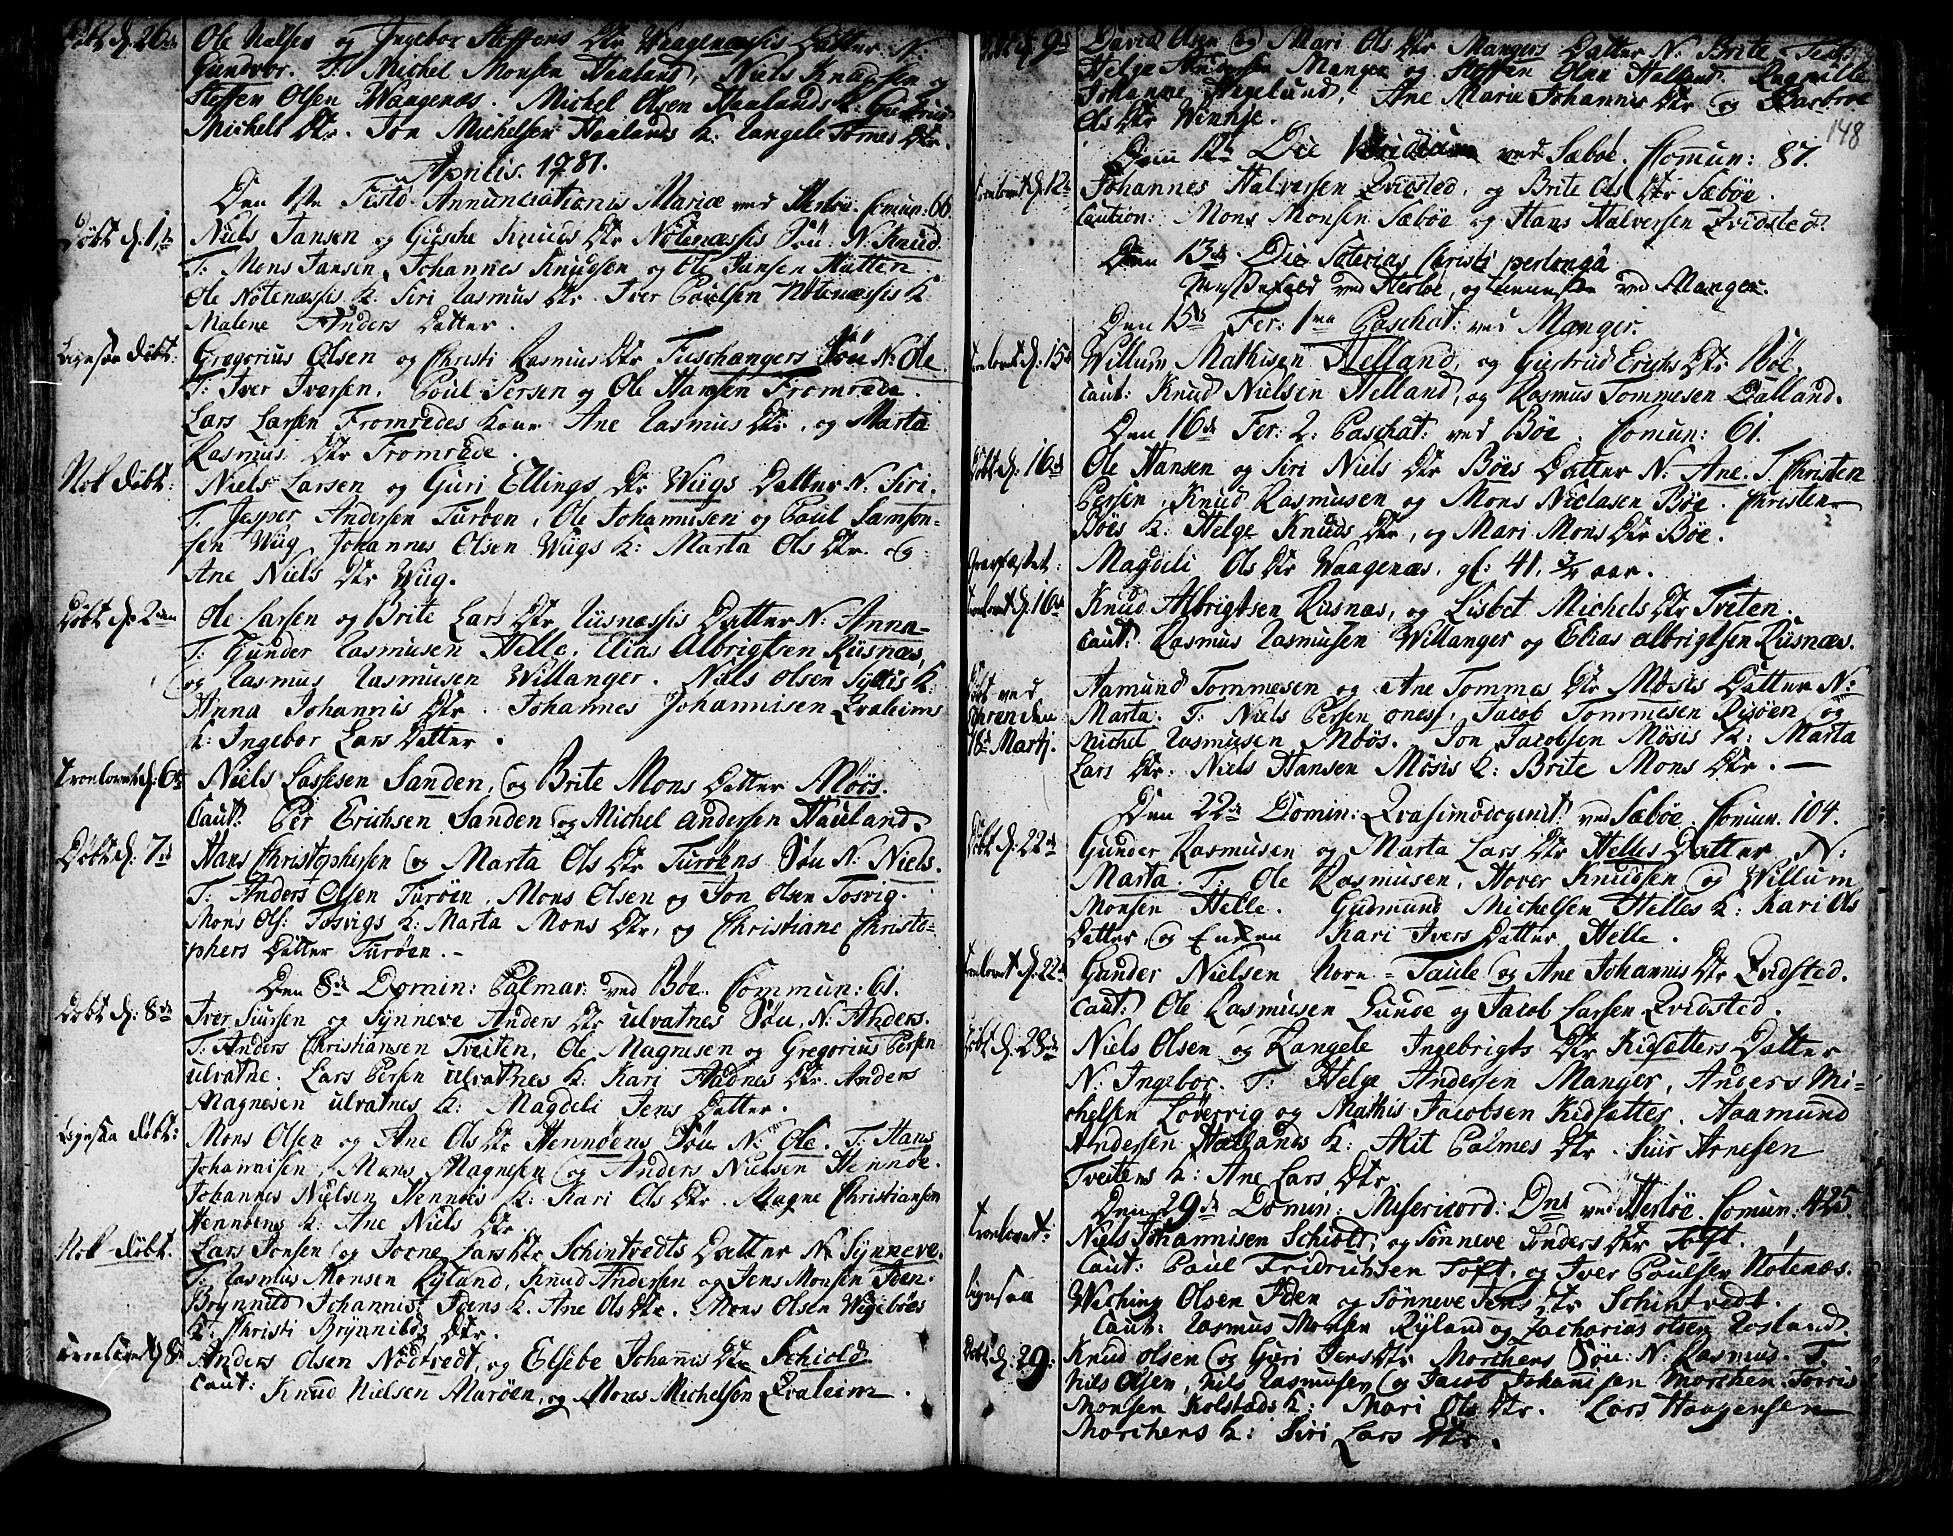 Døbt d: 26de Ole Nielsen og Ingebor Steffens Dtr Waagenæssis Datter N:
Gundvor. T: Michel Monsen Haaland, Niels Knudsen og
Steffen Olsen Waagenæs. Michel Olsen Haalands K: Giertrud
Michels Dtr. Jon Michelsen Haalands K: Rangele Tomes Dtr.
Aprilis. 1781.
Den 1te Festo Annunciationis Mariæ ved Herlöe Comun: 66.
Døbt d: 1te Niels Jansen og Gitsche Knuds Dtr Nötenæssis Søn: N. Knud.
T: Mons Jansen, Johannes Knudsen og Ole Jansen Hatten
Ole Nötenæssis K: Siri Rasmus Dtr. Iver Poulsen Nötenæssis K
Malene Anders Datter.
Ligesaa Døbt: Gregorius Olsen og Christi Rasmus Dtr Fuschangers Søn N: Ole.
T: Iver Iversen, Poul Persen og Ole Hansen Fromrede.
Lars Larsen Fromredes Kone Ane Rasmus Dtr. og Marta
Rasmus Dtr Fromrede.
Nok døbt: Niels Larsen og Guri Ellings Dtr Wiigs Datter N: Siri.
T. Jesper Andersen Turöen, Ole Johannisen og Poul Samson-
sen Wiig, Johannes Olsen Wiigs K: Marta Ols Dtr. og
Ane Niels Dtr Wiig.
Døbt d: 2den Ole Larsen og Brite Lars Dtr Riisnæssis Datter N: Anna-
T: Gunder Rasmusen Helle, Elias Albrigtsen Riisnæs,
og Rasmus Rasmusen Willanger. Niels Olsen K:
Anna Johannis Dtr. Johannes Johannisen Qvaleims
K: Ingebor Lars Datter.
Troelovet d: 6te Niels Lassesen Sanden, og Brite Mons Datter Møös.
Caut: Per Erichsen Sanden og Michel Andersen Hauland.
Døbt d: 7de Hans Christophersen og Marta Ols Dtr Turöens Søn N: Niels.
T. Anders Olsen Turöen, Mons Olsen og Jon Olsen Tosvig.
Mons Ols: Tosvigs K: Marta Mons Dtr, og Christiane Christo-
phers Datter Turöen.-
Den 8de Domin: Palmar: ved Böe. Commun: 61.
Døbt d: 8de Iver Siursen og Synneve Anders Dtr Ulvatnes Søn, N: Anders.
T: Anders Christiansen Tveiten, Ole Magnesen og Gregorius Persen
Ulvatne. Lars Persen Ulvatnes K: Kari Aadnes Dtr. Anders
Magnesen Ulvatnes K: Magdeli Jens Datter.
Ligesaa døbt: Mons Olsen og Ane Ols Dtr Hennöens Søn N: Ole. T: Hans
Johannisen, Mons Magnesen og Anders Nielsen Hennöe.
Johannes Nielsen Hennöes K: Kari Ols Dtr. Magne Christiansen
Hennöens K: Ane Niels Dtr.
Nok døbt. Lars Jonsen og Joene Lars Dtr Schintvedts Datter N: Synneve.
T: Rasmus Monsen Ryland, Knud Andersen og Jens Monsen Iden.
Brynnild Johannis: Idens K. Ane Ols Dtr. Mons Olsen Wigeböes
K: Christi Brynnilds Dtr.
Troelovet d 8de Anders Olsen Nödtvedt, og Elsebe Johannis Dtr Schiold
Caut: Knud Nielsen Maröen, og Mons Michelsen Qvaleim.
Døbt d: 9de David Olsen og Mari Ols Dtr Mangers Datter N: Brite. Test:
Helge Andersen Manger og Steffen Olsen Halland. Ragnille
Johanne Hegelund, Ane Maria Johannis Dtr og Barbroe
Ols Dtr Winnje.
148
Den 12te Die Viridium ved Sæboe. Comun: 87.
Troelovet d: 12te Johannes Halversen Qvidsted, og Brite Ols Dtr Sæböe.
Caution: Mons Monsen Sæböe og Hans Halversen Qvidsted.
Den 13de Die Paterias Christi perlonga
ved Herlöe, og ved Manger.
Den 15de Fer: 1ma Paschat: ved Manger.
Troelovet d: 15de Willum Mathisen Helland, og Giertrud Erichs Dtr Böe.
Caut: Knud Nielsen Helland, og Rasmus Tommesen Dalland.
Den 16de Fer: 2: Paschat: ved Böe. Comun: 61.
Døbt d: 16de Ole Hansen og Siri Niels Dtr Böes Datter N: Ane. T. Christen
Persen, Knud Rasmusen og Mons Nielssen Böe. Christen
Böes K: Helge Knuds Dtr, og Mari Mons Dtr Böe.
Grafæstet: Magdeli Ols Dtr Waagenæs, gl: 41. 3/4 aar.
Troelovet d: 16de Knud Albrigtsen Riisnæs, og Lisbet Michels Dtr Tviten.
Caut: Rasmus Rasmusen Willanger og Elias Albrigtsen Riisnæs.
Døbt ved Aamund Tommesen og Ane Tommes Dtr Mösis Datter N:
den Marta. T: Niels Persen ones:, Jacob Tommesen Risöen og
18de Martj. Michel Rasmusen Mbös. Jon Jacobsen Mösis K: Marta
Lars Dtr: Niels Hansen Mösis K: Brite Mons Dtr. —
Den 22de Domin: Qvasimodogenit: ved Sæböe. Comun. 104.
Døbt d: 22de Gunder Rasmusen og Marta Lars Dtr Helles Datter N:
Marta. T: Ole Rasmusen, Hover Knudsen og Willum
Monsen Helle. Gudmund Michelsen Helles K: Kari Ols
Datter, og Enken Kari Ivers Datter Helle.
Troelovet d: 22de Gunder Nielsen Norn-Taule og Ane Johannis Dtr Qvidsted.
Caut: Ole Rasmusen Lunde og Jacob Larsen Qvidsted.
Døbt d: 28de Niels Olsen og Rangele Ingebrigts Dtr Kidsetters Datter
N: Ingebor. T: Helge Andersen Manger, Anders Mi-
chelsen Löverrig og Mathis Jacobsen Kidsetter. Aamund
Andersen Hallands K: Akit Palmes Dtr. Siur Arnesen
Tveitens K: Ane Lars Dtr.
Den 29de Domin: Misericord: Dni ved Herlöe. Comun: 425.
Troelovet: Niels Johannisen Schiold, og Sönneve Anders Dtr Toft.
Caut: Poul Fridrichsen Toft, og Iver Poulsen Nötenæs.
Ligesaa Wiching Olsen Iden og Sönneve Jens Dtr Schintvedt.
Caut: Rasmus Monsen Ryland og Zacharias Olsen Rosland.
Døbt d: 29: Knud Olsen og Guri Jens Dtr Morchens Søn: N: Rasmus. T.
Nils Olsen, Nils Rasmusen og Jacob Johannisen Morchen. Torris
Monsen Kolstads K: Mari Ols Dtr. Lars Haagensen
Morchens K: Siri Lars Dtr.